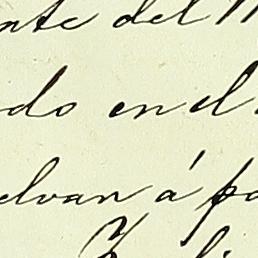 nte del M
do en el
elvan á pa